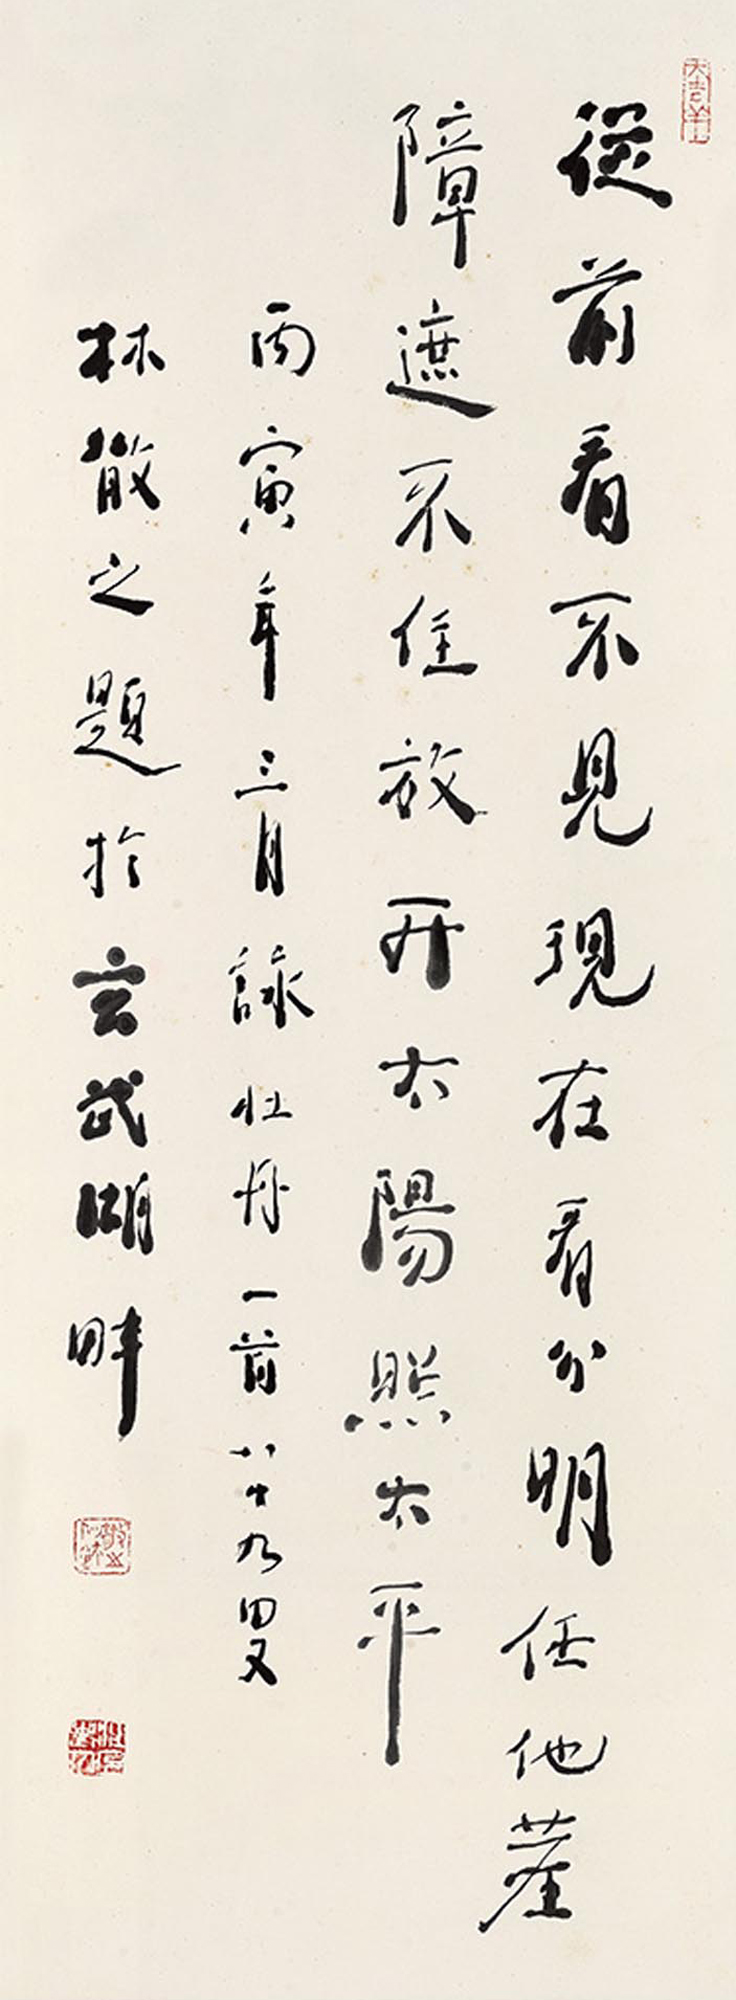 從前看不見現在看分明任他塵
障遮不住放开太陽照太平
丙寅年三月詠牡丹一首八十九叟
林散之題於玄武湖畔